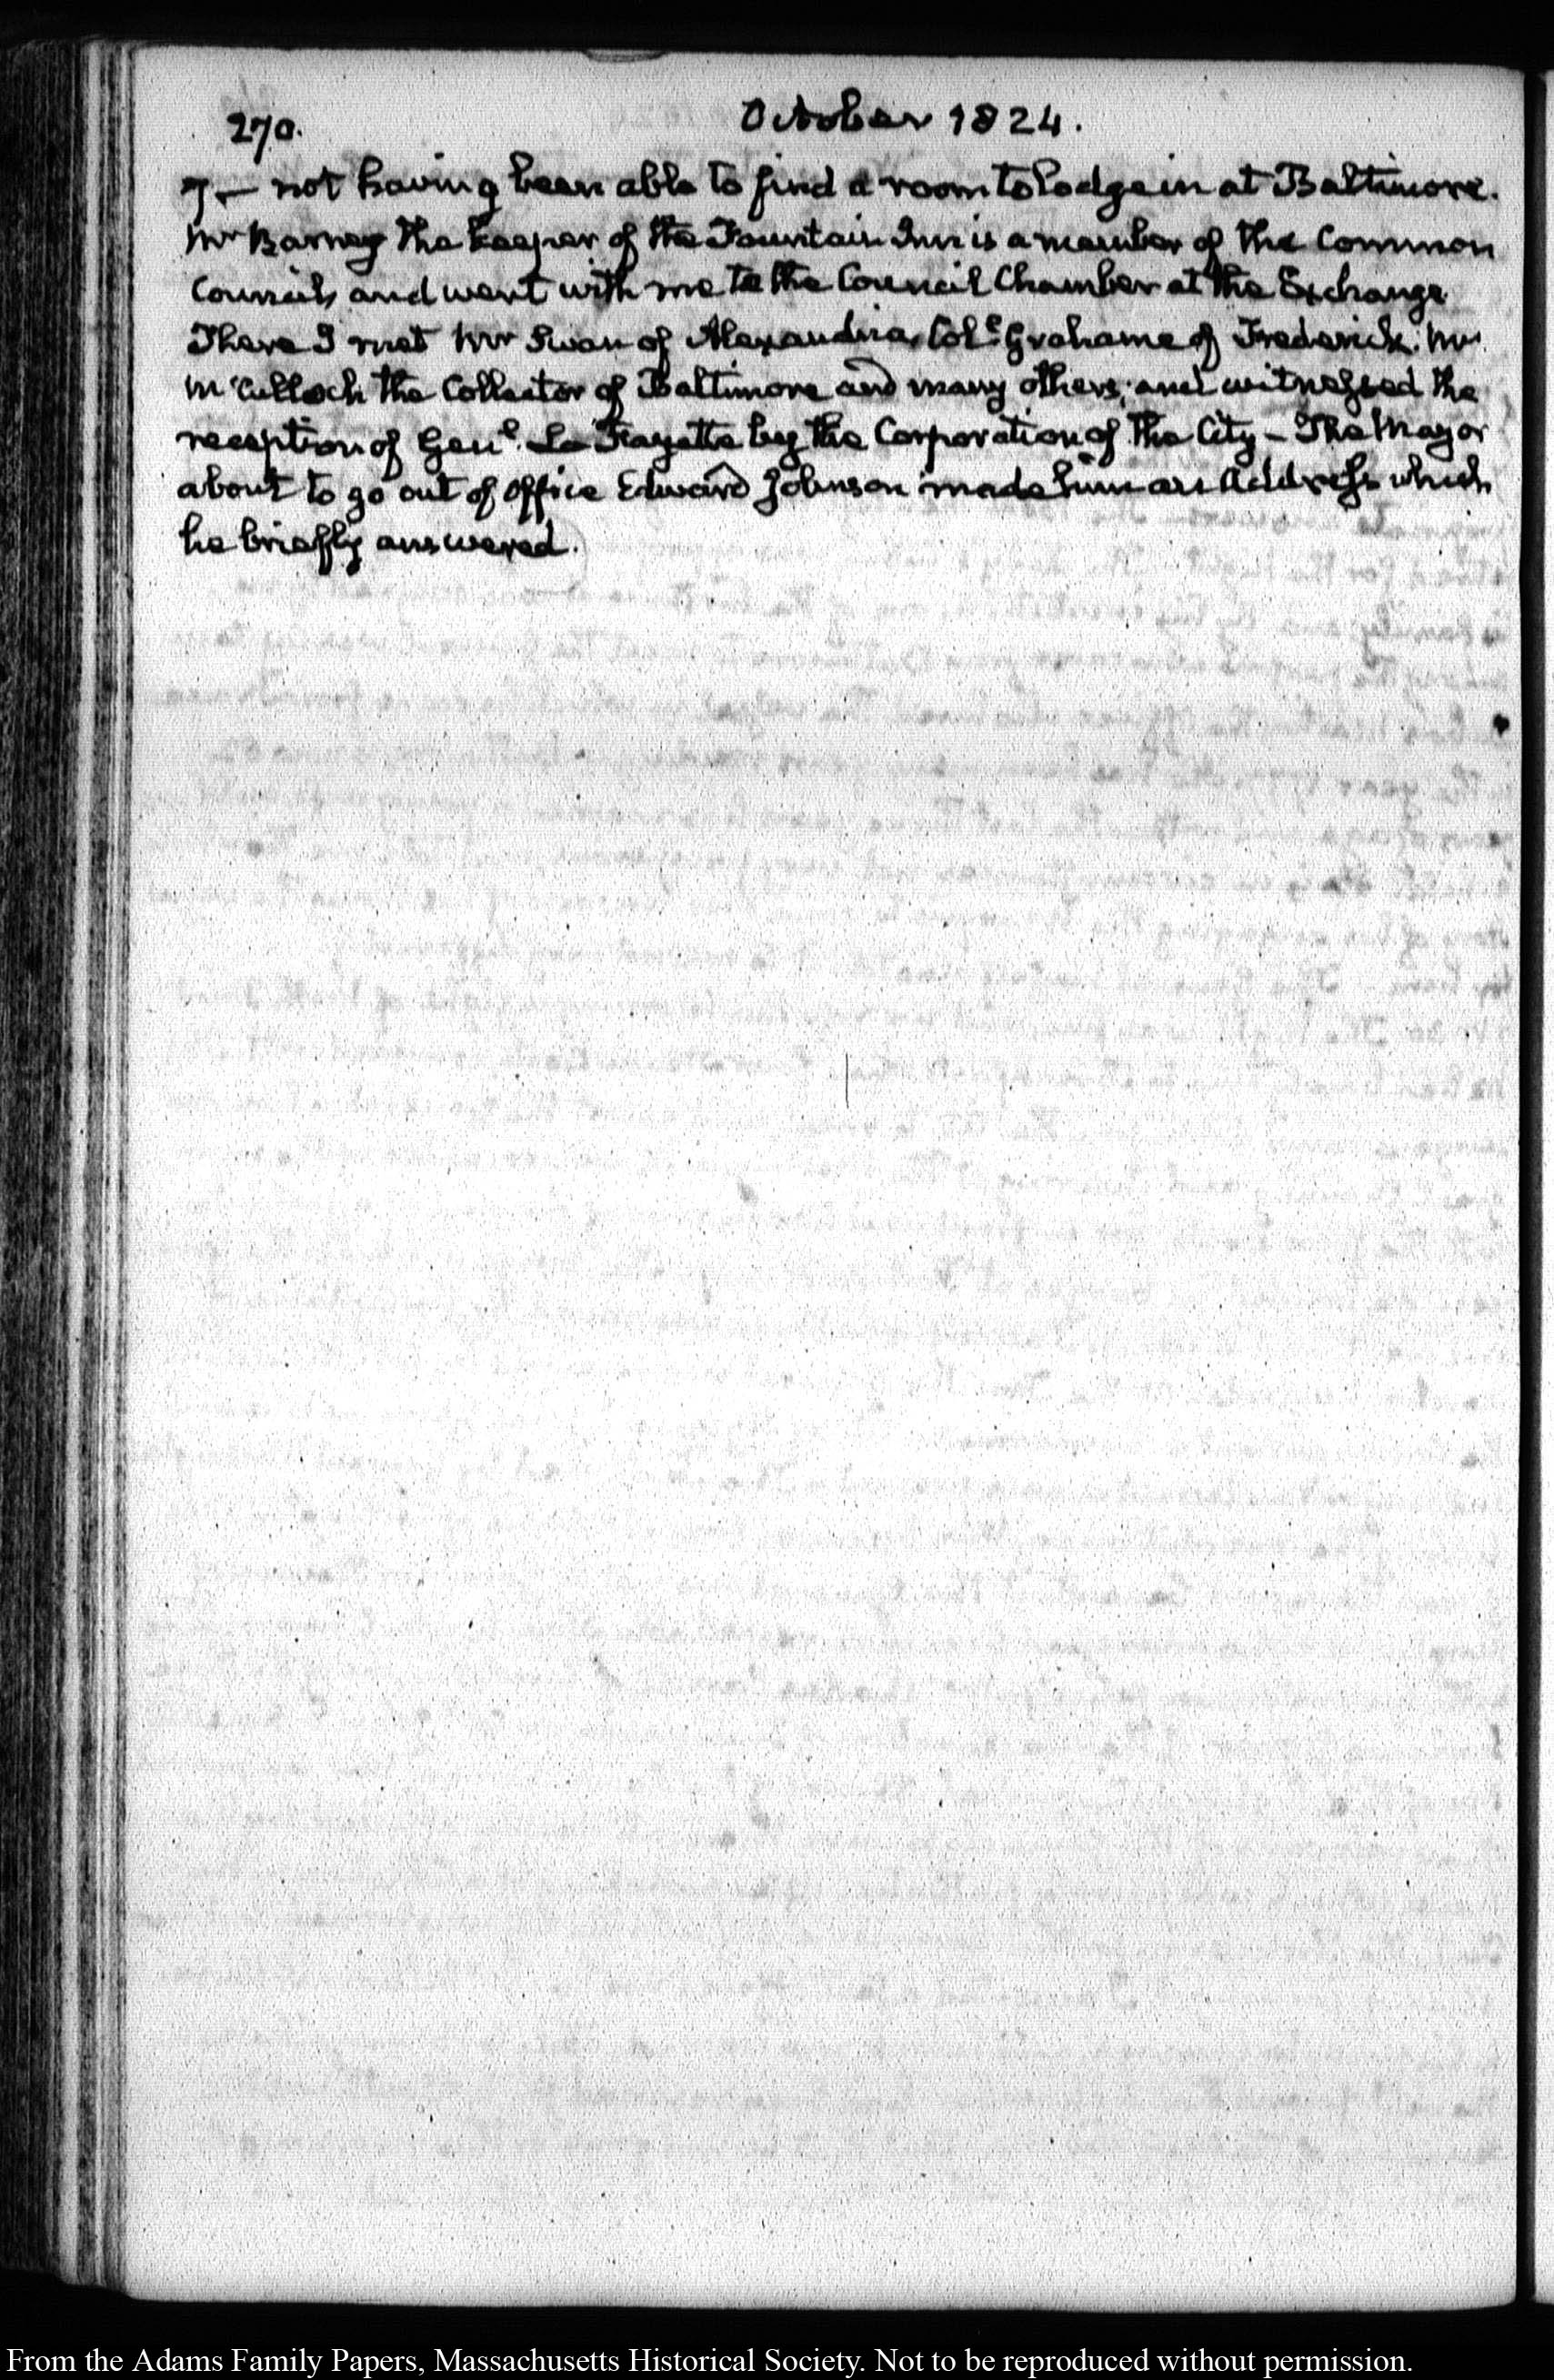 270.
October 1824.
7— not having been able to find a room to lodge in at Baltimore.
Mr Barney the keeper of the Fountain Inn is a member of the Common
Council, and went with me to the Council Chamber at the Exchange
There I met Mr Swan of Alexandria, Coll Grahame of Frederick. Mr
McCulloch the Collector of Baltimore and many others; and witnessed the
reception of Genl. La Fayette by the Corporation of the City — The Mayor
about to go out of office Edward Johnson made him an address which
he briefly answered.
From the Adams Family Papers, Massachusetts Historical Society. Not to be reproduced without permission.